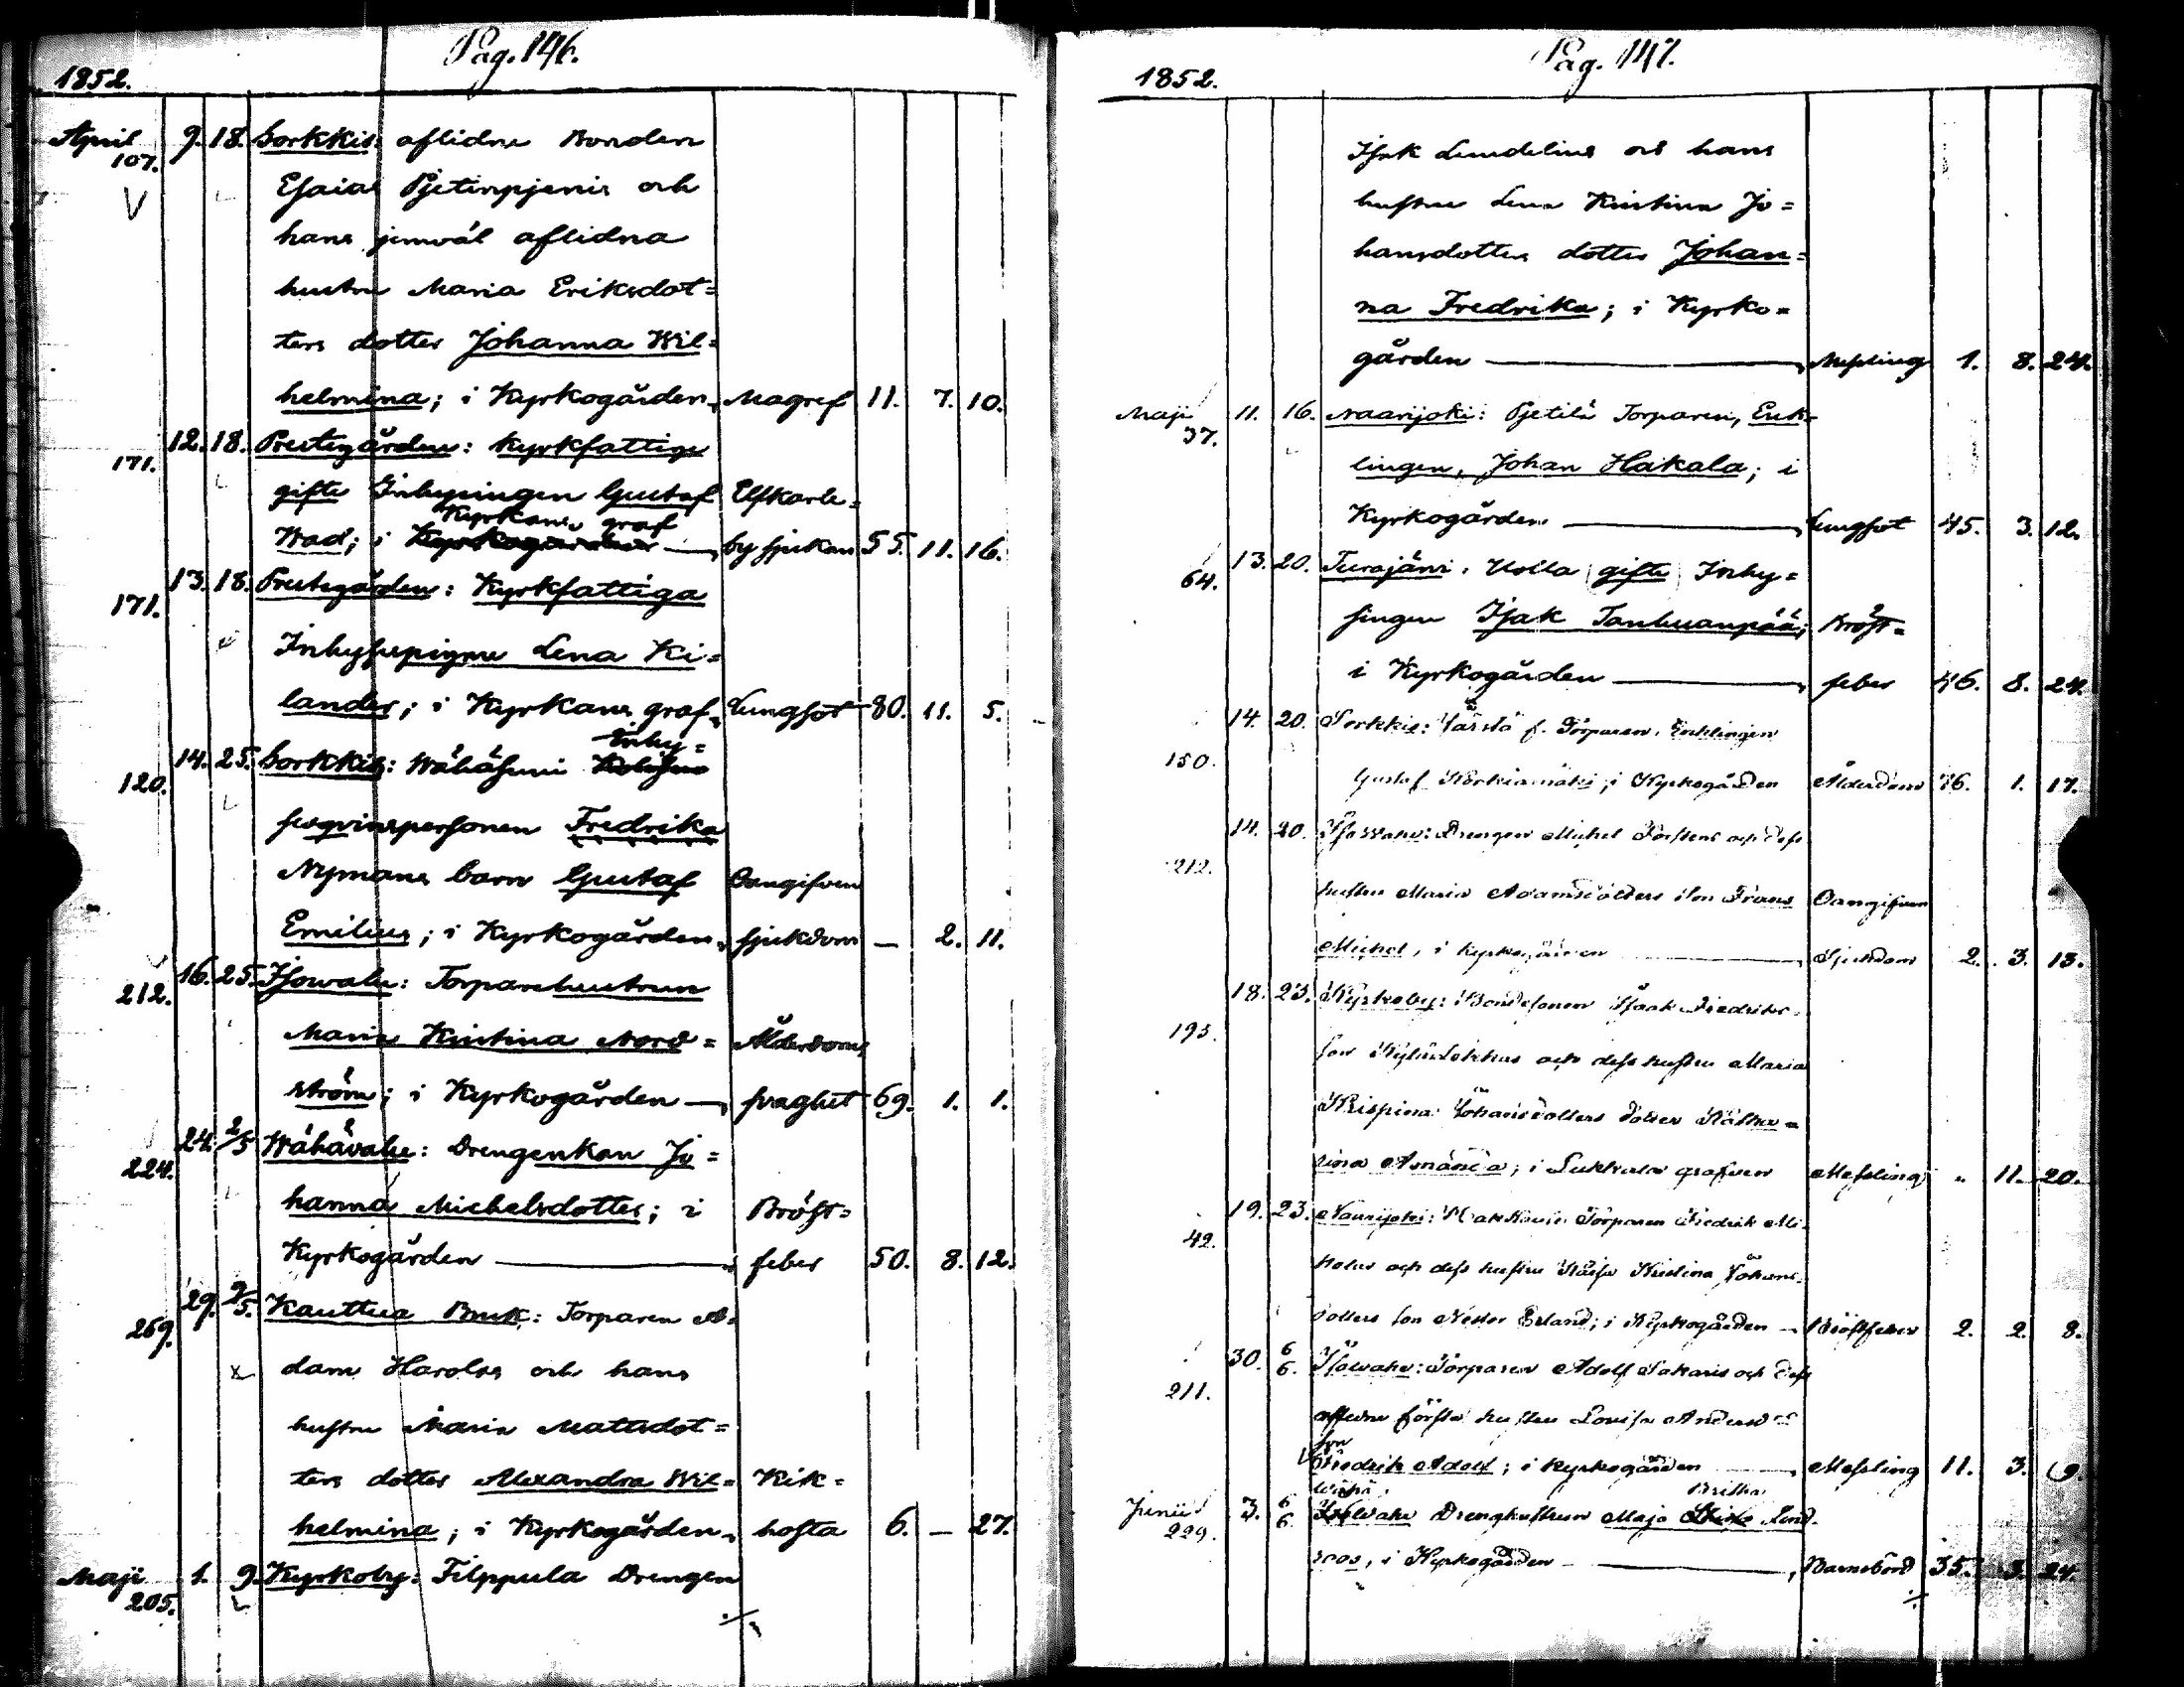 Pag. 146.
1852.
April 9. 18. Sorkkis: aflidne Bonden
107.
Esaias Pjetinpjenis och
hans jemväl aflidna
hustru Maria Eriksdot=
ters dotter Johanna Wil=
helmina; i Kyrkogården, Magref 11. 7. 10.
12. 18. Prestegården: Kyrkfattige
171.
gifte Inhysingen Gustaf Elfkarle=
Kyrkans graf
Wad; i Kyrkogården by sjukan 55. 11. 16.
13. 18. Prestegården: Kyrkfattiga
171.
Inhysespigan Lena Ki=
lander; i Kyrkans graf, Lungsot 80. 11. 5.
Inhy=
14. 25. Sorkkis: Wähäsuni
120.
sesqvinspersonen Fredrika
Nymans barn Gustaf Oangifven
Emilius; i Kyrkogården, sjukdom — 2. 11.
16. 25. Isowahe: Torparehustrun
212.
Maria Kristina Nord= Ålderdoms
ström; i Kyrkogården — svaghet 69. 1. 1.
24. 2/5 Wähävahe: Drengenkan Jo=
224.
hanna Michelsdotter; i Bröst=
Kyrkogården — feber 50. 8. 12.
29. 2/5. Kauttua Bruk: Torparen A=
269.
dam Harolas och hans
hustru Maria Mattsdot=
ters dotter Alexandra Wil= Kik=
helmina; i Kyrkogården, hosta 6. — 27.
Maji 1. 9. Kyrkoby: Filppula Drengen
205.
./.
Pag. 147.
1852.
Isak Lundelius och hans
hustru Lena Kristina Jo=
hansdotters dotter Johan=
na Fredrika; i Kyrko=
gården — Messling 1. 8. 24.
Maji 11. 16. Naarijoki: Pjetilä Torparen, Enk=
37.
lingen, Johan Hakala; i
Kyrkogården — Lungsot 45. 3. 12.
13. 20. Turajärvi: Uolla gifte Inhy=
64.
singen Isak Tanhuanpää; Bröst=
i Kyrkogården — feber 46. 8. 24.
14. 20. Sorkkis: f. Torparen, Enklingen
150.
Gustaf; i Kyrkogården Ålderdom 76. 1. 17.
14. 20. Isowahe: Drengen Michel Förstens och dess
212.
hustru Maria Adamsdotters son Frans Oangifven
Michel, i kyrkogården — Sjukdom 2. 3. 13.
18. 23. Kyrkoby: Bondesonen Isaak Fredriks=
195.
son och dess hustru Maria
Krispina Johansdotters dotter
rina Amanda; i grafven Messling „ 11. 20.
19. 23. Naarijoki: Torparen Fredrik
42.
och dess hustru Kaisa Kristina Johans=
dotters son Nestor Erland; i Kyrkogården — Bröstfeber 2. 2. 8.
30. 6/6. Isowahe: Torparen Adolf Sakaris och dess
211.
aflidne första hustru Lovisa Andersd:s
son
Fredrik Adolf; i kyrkogården — Messling 11. 3. 9.
Wähä Britha
Junii 3. 6/6. Isowahe Drenghustrun Maja Stina Lind=
229.
roos, i Kyrkogården — Barnsbörd 35. 3. 24.
./.